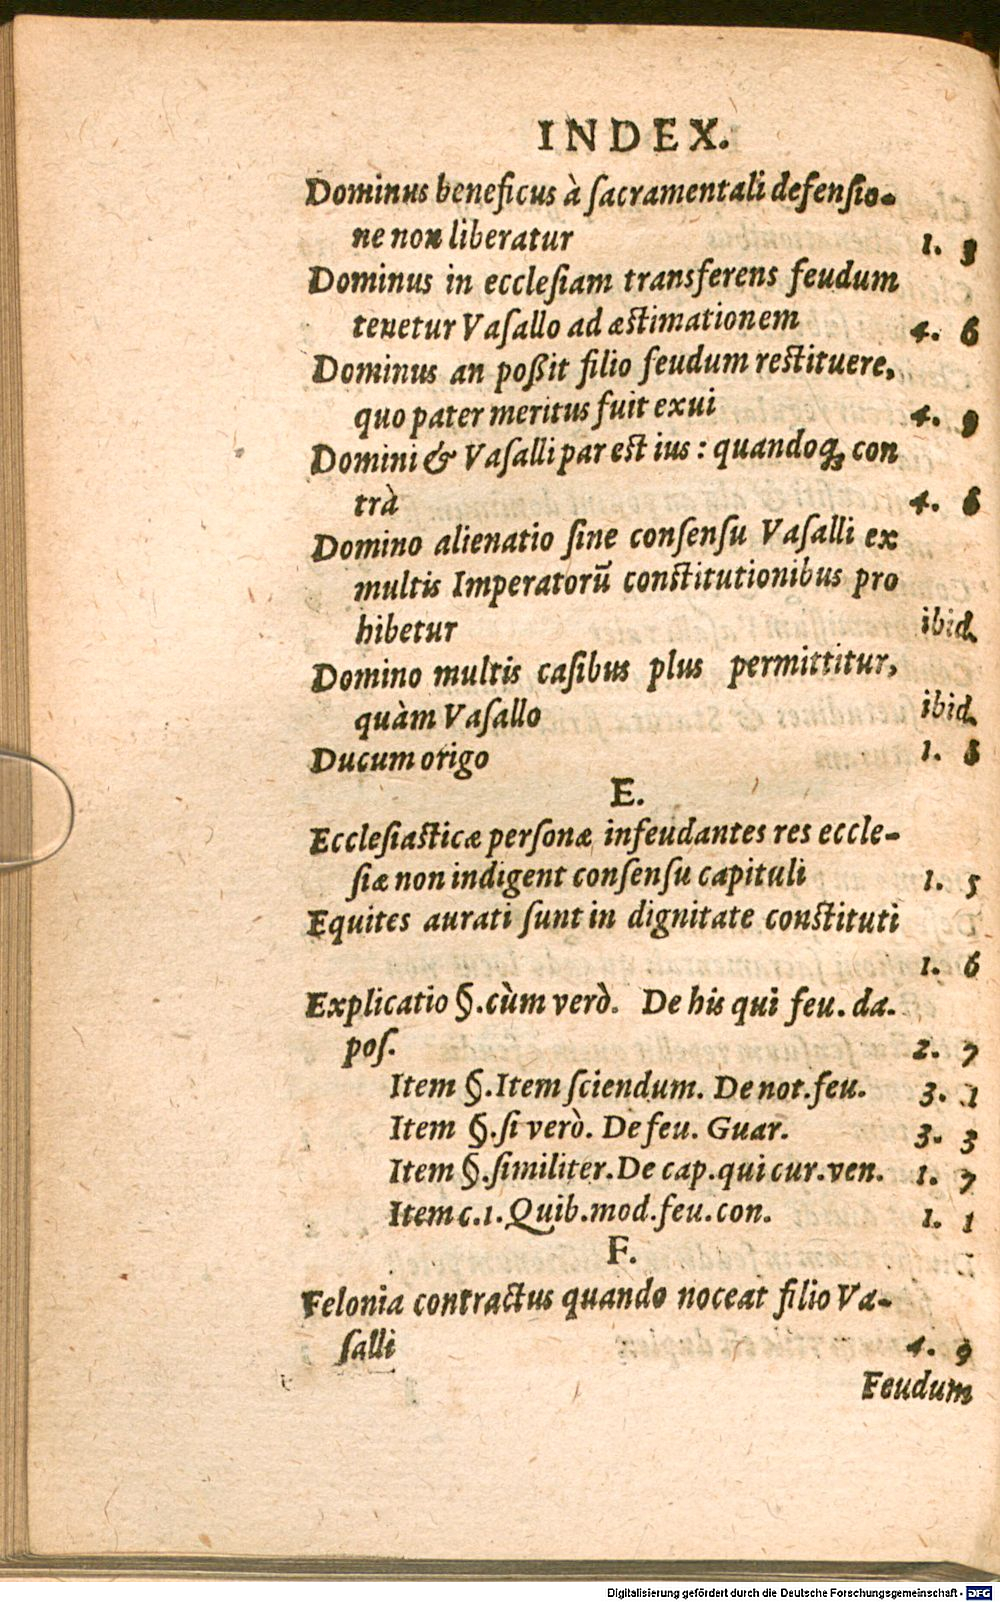 INDEX.
Dominus beneficus à ſacramentali defenſio-
ne non liberatur 1. 3
Dominus in eccleſiam transferens feudum
tenetur Vaſallo ad æstimationem 4. 6
Dominus an poßit filio feudum restituere,
quo pater meritus fuit exui 4. 9
Domini & Vaſalli par est ius : quandoq; con
trà 4. 8
Domino alienatio ſine conſenſu Vaſalli ex
multis Imperatorū constitutionibus pro
hibetur ibid.
Domino multis caſibus plus permittitur,
quàm Vaſallo ibid.
Ducum origo 1. 8
E.
Eccleſiasticæ perſonæ infeudantes res eccle-
ſiæ non indigent conſenſu capituli 1. 5
Equites aurati ſunt in dignitate constituti
1. 6
Explicatio §.cùm verò. De his qui feu. da.
poſ. 2. 7
Item §.Item ſciendum. De not.feu. 3. 1
Item §.ſi verò. De feu. Guar. 3. 3
Item §.ſimiliter.De cap.qui cur.ven. 1. 7
Item c.1.Quib.mod.feu.con. 1. 1
F.
Felonia contractus quando noceat filio Va-
ſalli 4. 9
Feudum
Digitalisierung gefördert durch die Deutsche Forschungsgemeinschaft - DFG